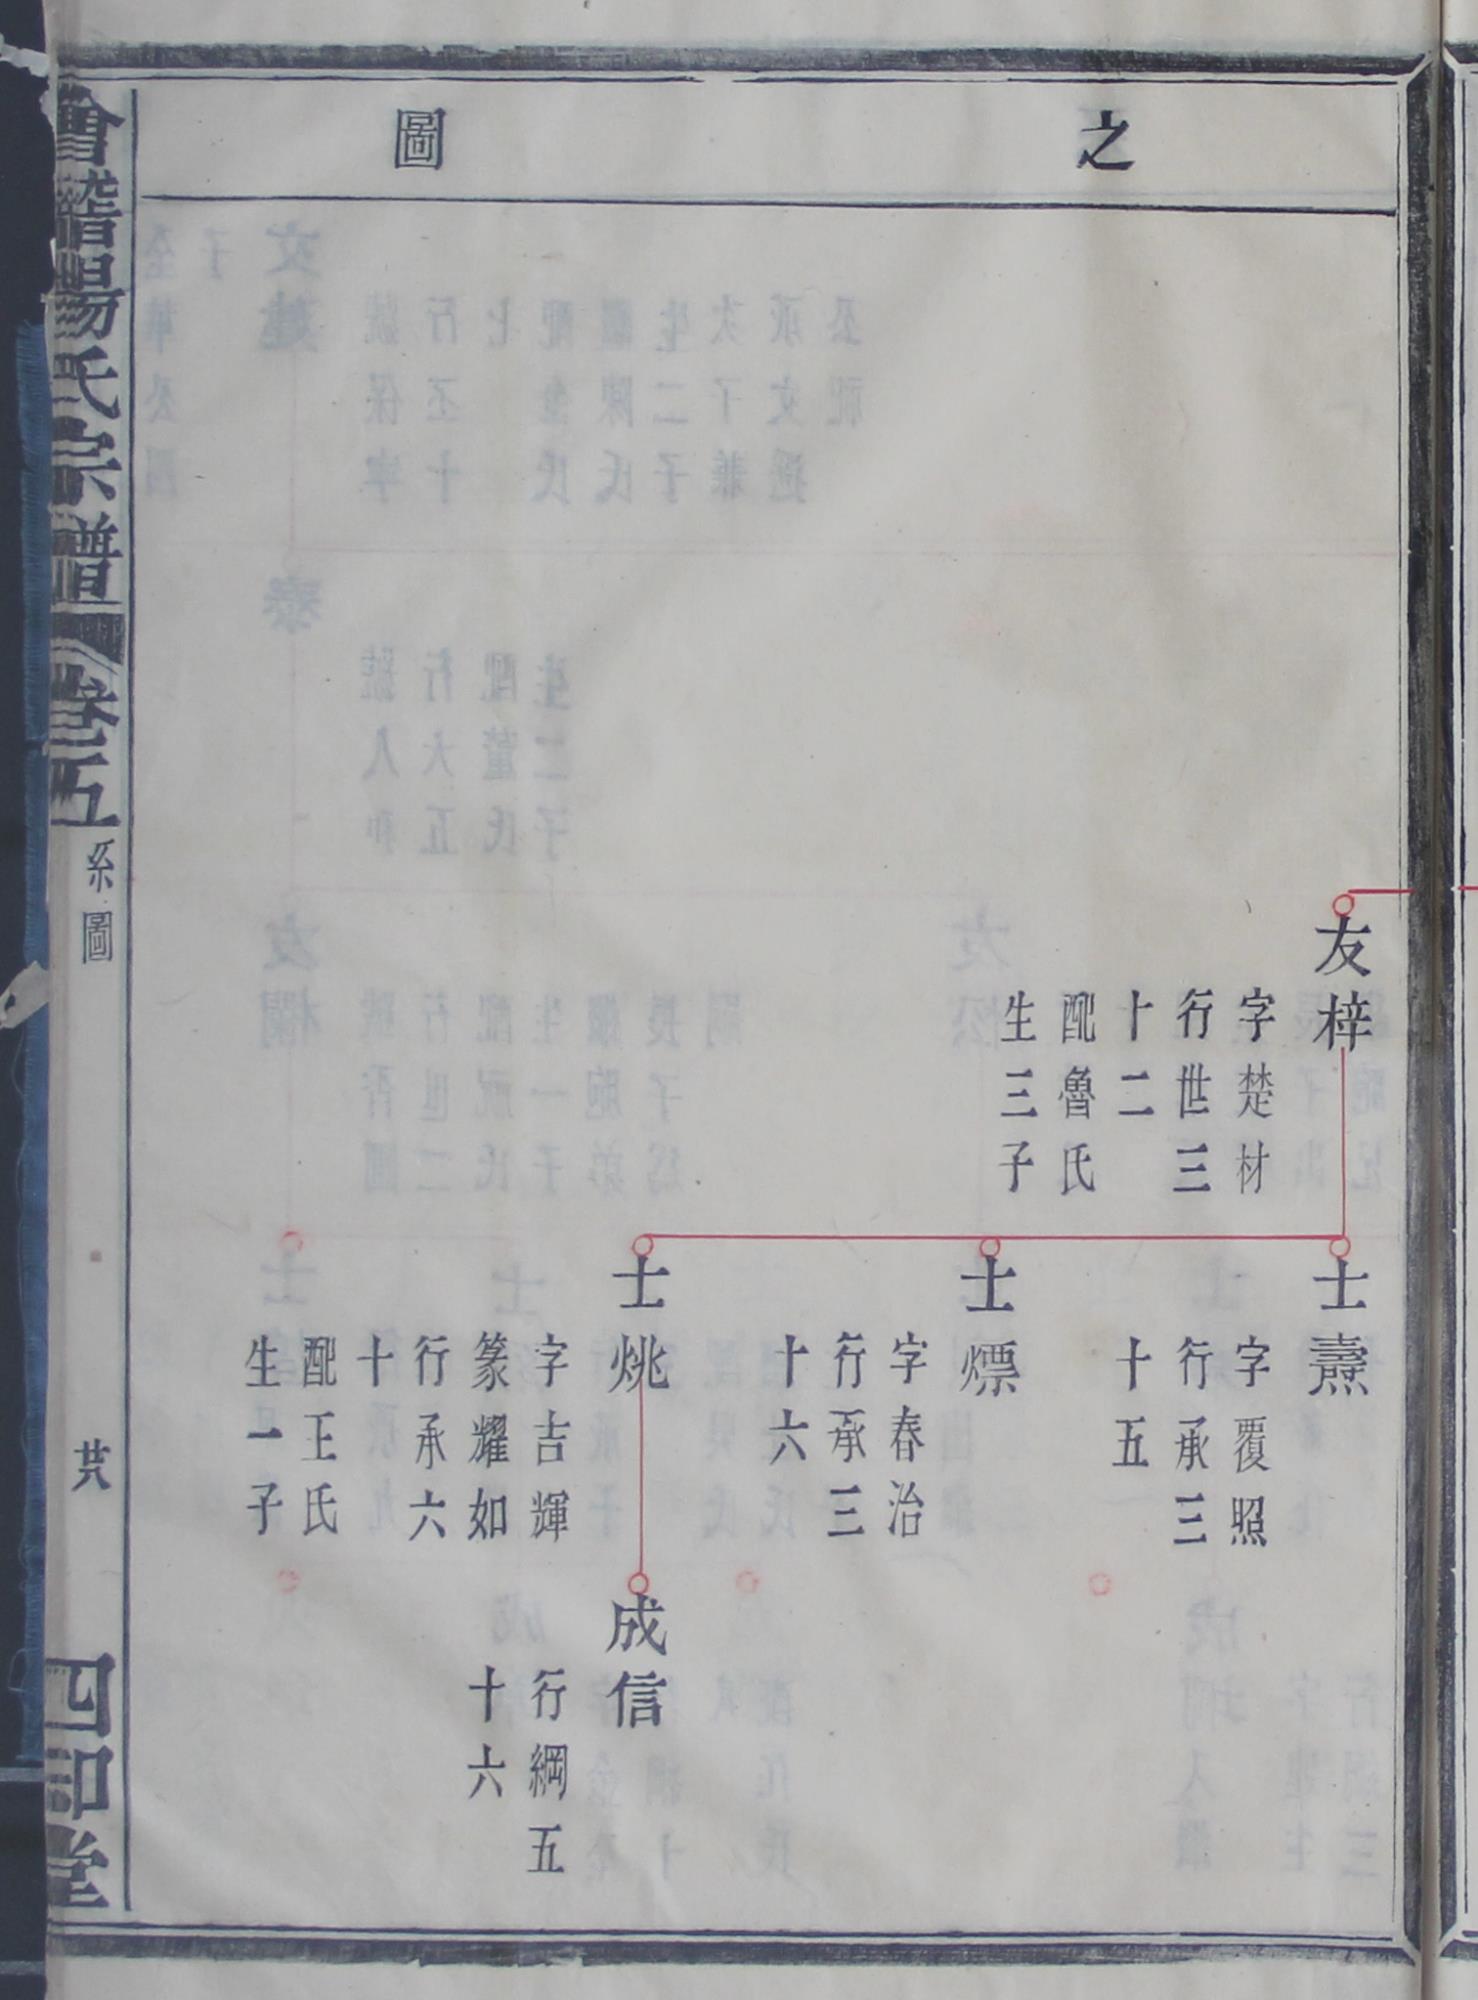 之圖
友梓
字楚材
行世三
十二
配魯氏
生三子
士燾
字覆照
行承三
十五
士熛
字春治
行承三
十六
士烑
字吉輝
篆耀如
行承六
十
配王氏
生一子
成信
行綱五
十六
會稽楊氏宗譜
卷五
系圖
廿八
四知堂